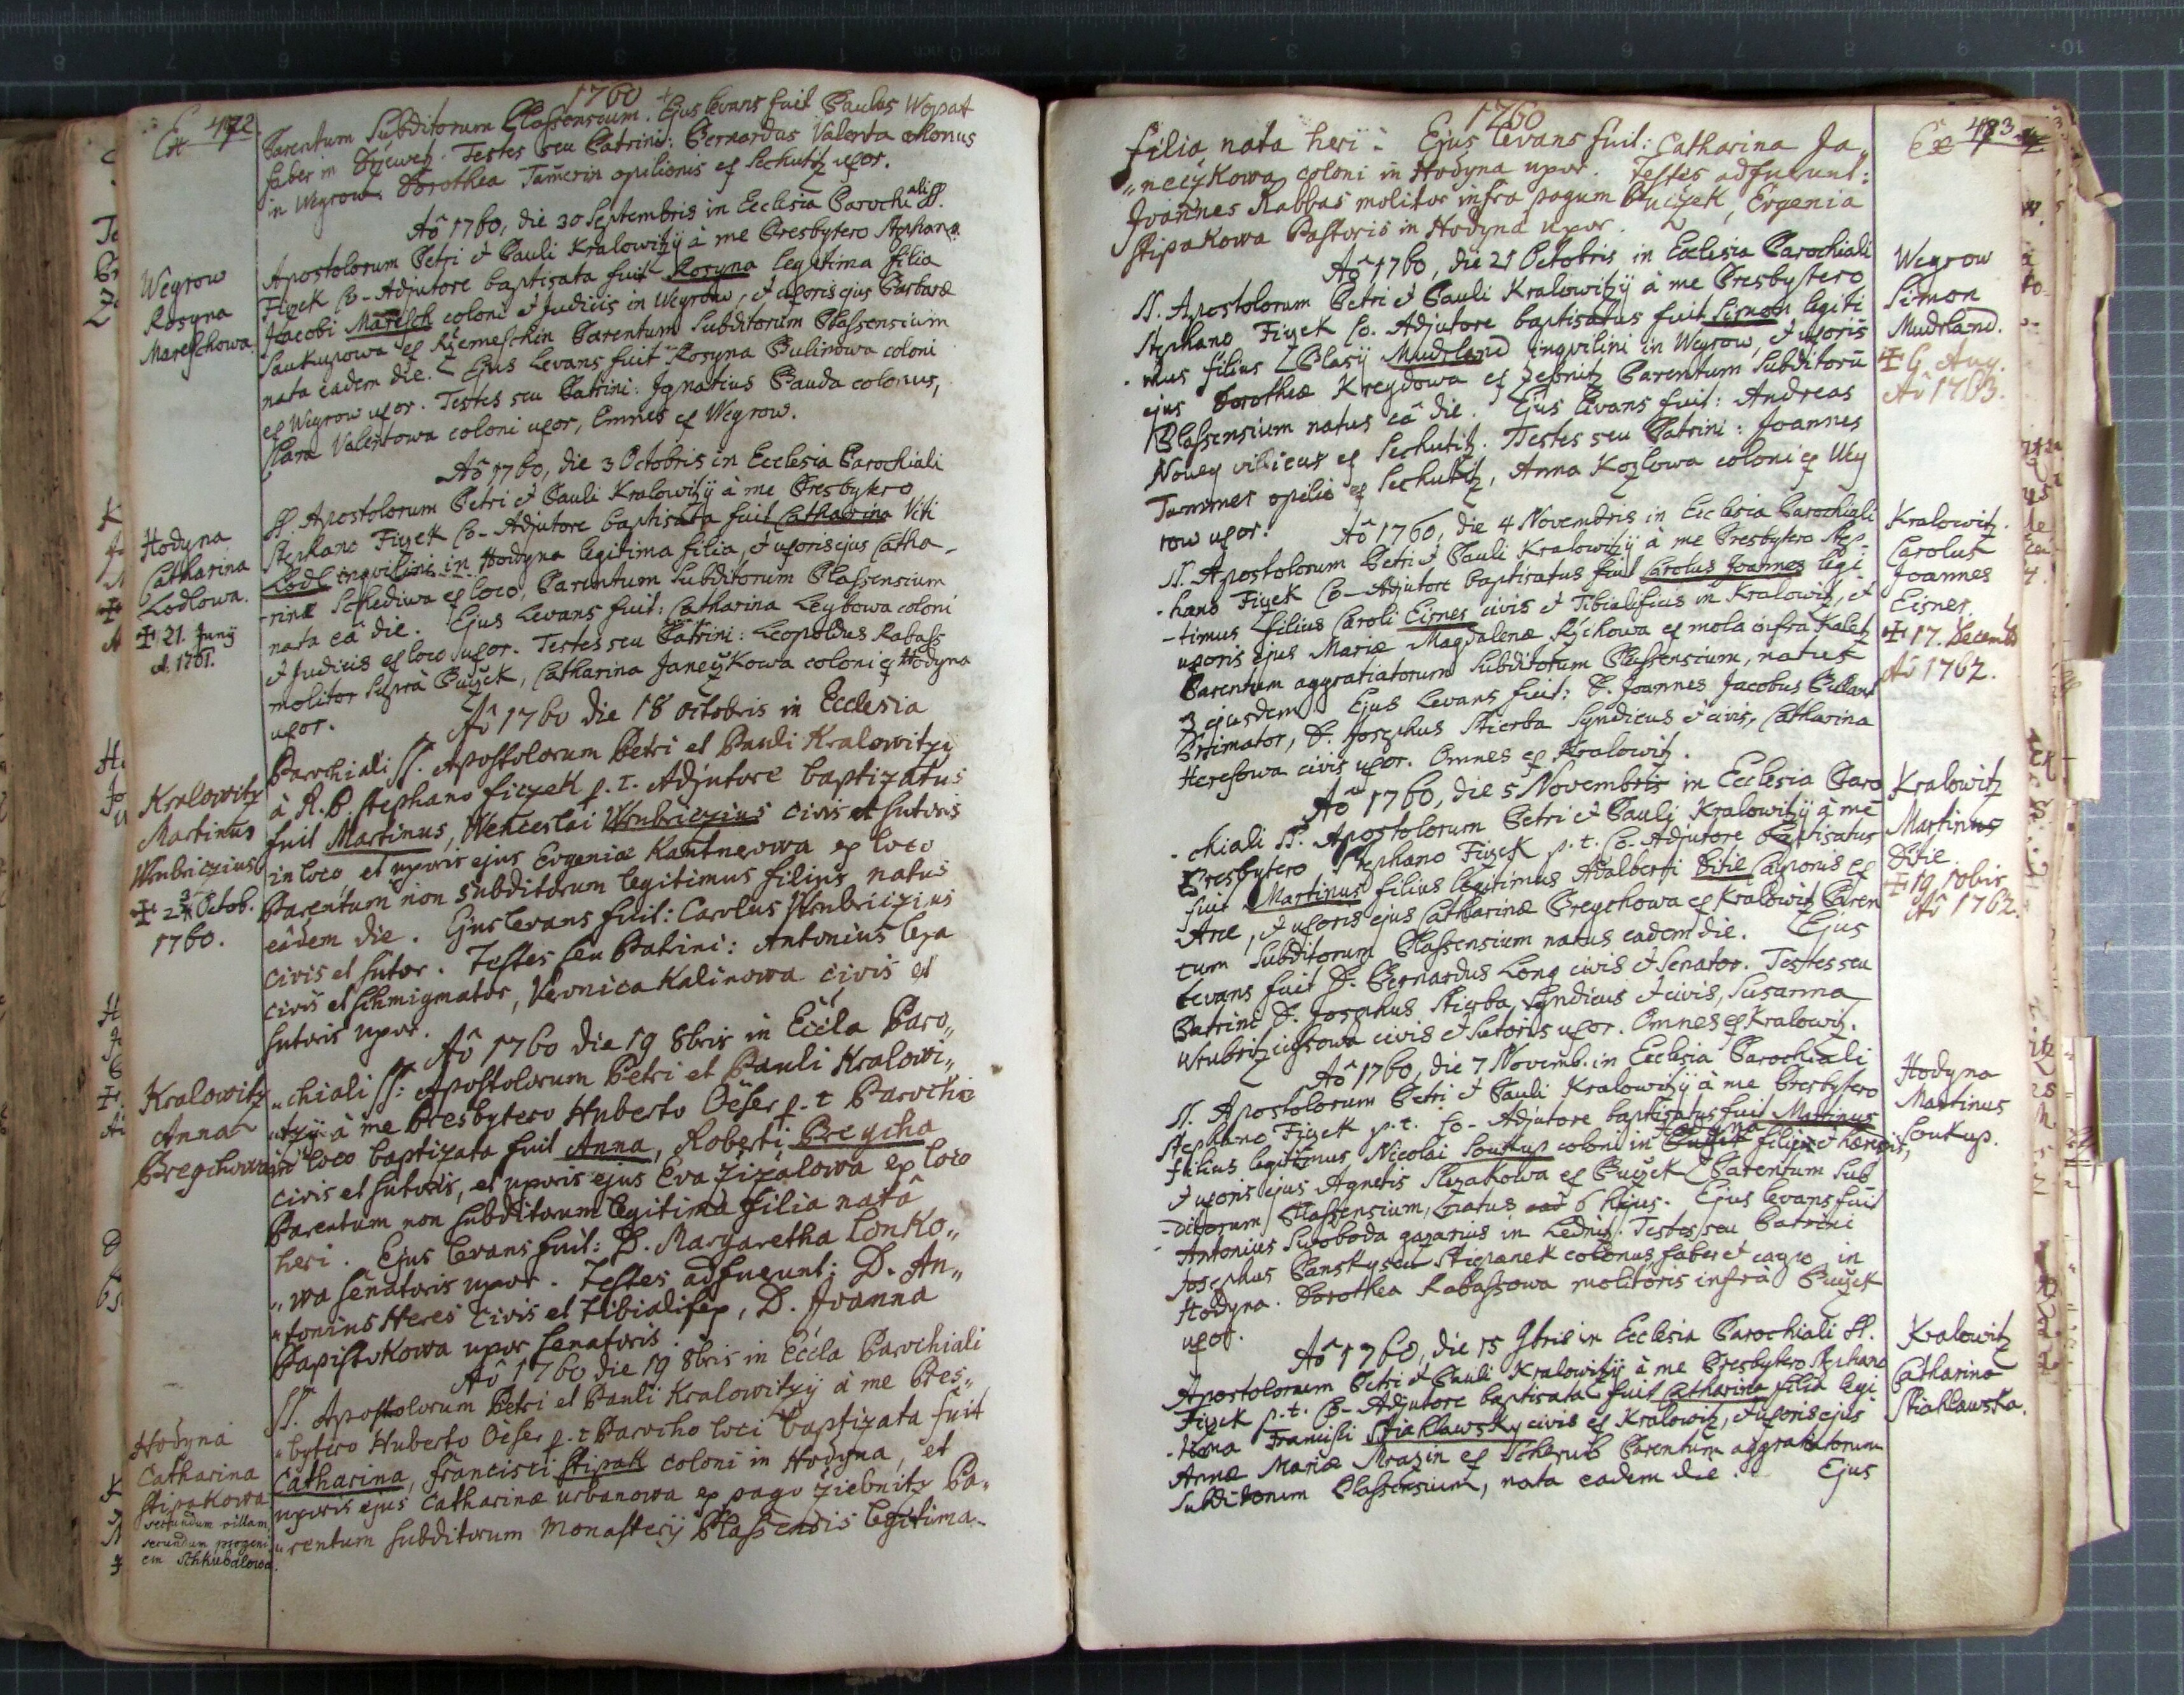 1760
472.
Parentum Subditorum Plassensium. Ejus levans fuit Paulus
faber in Testes seu Patrini: Bernardus Valenta colonus
in Wegrow. Dorothea Tamerin opilionis ex Sechutitz uxor.
Aô 1760, die 30 Septembris in Ecclesia Parochiali SS.
Wegrow
Rosyna
Mareschowa.
Apostolorum Petri & Pauli Kralowitzÿ à me Presbytero Stephano
Ficzek Co-Adjutore baptisata fuit Rosyna legitima filia
Jacobi Maresch coloni & Judicis in Wegrow, & uxoris ejus Barbaræ
Saukupowa ex Parentum Subditorum Plassensium
nata eadem die. Ejus Levans fuit Rosyna Pulirowa coloni
ex Wegrow uxor. Testes seu Patrini: Ignatius Bauda colonus,
Clara Valentowa coloni uxor, Omnes ex Wegrow.
Aô 1760, die 3 Octobris in Ecclesia Parochiali
Hodyna
Catharina
Lodlowa.
✠ 21. Junÿ
A. 1761.
SS. Apostolorum Petri & Pauli Kralowitzÿ à me Presbytero
Stephano Ficzek Co-Adjutore baptisata fuit Catharina Viti
Lodl inqvilini in Hodyna legitima filia, & uxoris ejus Catha-
-rinæ Schediwa ex loco, Parentum Subditorum Plassensium
nata eâ die. Ejus Levans fuit: Catharina Leybowa coloni
& Judicis ex loco uxor. Testes seu Patrini: Leopoldus Rabass
molitor suprà Buczek, Catharina Janeczkowa coloni ex Hodyna
uxor.
Aô 1760 die 18 octobris in Ecclesia
Kralowitz
Martinus
Wrubiczius
✠ Octob.
1760.
Parochiali SS. Apostolorum Petri et Pauli Kralowitzÿ
à R. P. Stephano Ficzek p. t. Adjutore baptizatus
fuit Martinus, Wenceslai Wrubiczius civis et sutoris
in loco et uxoris ejus Evgeniæ Kantnerowa ex loco
Parentum non subditorum legitimus filius natus
eâdem die. Ejus levans fuit: Carolus Wrubiczius
civis et sutor. Testes seu Patrini: Antonius
civis et Schmigmator, Veronica Kalinowa civis et
sutoris uxor.
Aô 1760 die 19 8bris in Eccla Paro„
Kralowitz
Anna
Bregchowa
„chiali SS: Apostolorum Petri et Pauli Kralowi„
„tzÿ à me Presbytero Huberto Oeser p. t. Parocho
in loco baptizata fuit Anna, Roberti Bregcha
civis et sutoris, et uxoris ejus Eva Zizalowa ex loco
Parentum non subditorum legitima filia nata
heri. Ejus levans fuit: D. Margaretha Lonko„
„wa senatoris uxor. Testes adfuerunt: D. An„
„tonius Heres civis et tibialifex, D. Joanna
Papistokowa uxor senatoris.
Aô 1760 die 19 8bris in Eccla Parochiali
Hodyna
Catharina
Stipakowa
secundum villam,
secundum progeni„
em Schkubalowa.
SS. Apostolorum Petri et Pauli Kralowitzÿ à me Pres„
„bytero Huberto Oeser p. t. Parocho loci baptizata fuit
Catharina, Francisci Stipak coloni in Hodyna, et
uxoris ejus Catharinæ Urbanowa ex pago Ziebnitz Pa„
„rentum subditorum Monasterÿ Plassensis legitima
1760
473
filia nata heri. Ejus levans fuit: Catharina Ja„
„neczkowa coloni in Hodyna uxor. Testes adfuerunt:
Joannes Rabbas molitor infra pagum Buczek, Evgenia
Stipakowa Pastoris in Hodyna uxor.
Aô 1760, die 21 Octobris in Ecclesia Parochiali
Wegrow
Simon
Mudrland.
✠ 6 Aug.
Aô 1763.
SS. Apostolorum Petri & Pauli Kralowitzÿ à me Presbytero
Stephano Ficzek Co. Adjutore baptisatus fuit Simon legiti
-mus filius Blasÿ Mudrland inqvilini in Wegrow, & uxoris
ejus Dorotheæ Kreydowa ex Zebnitz Parentum Subditorũ
Plassensium natus eâ die. Ejus levans fuit: Andreas
Nowey villicus ex Sechutitz. Testes seu Patrini: Joannes
Tammer opilio ex Sechutitz, Anna Kozlowa coloni ex Weg
row uxor.
Aô 1760, die 4 Novembris in Ecclesia Parochiali
Kralowitz.
Carolus
Joannes
Eisner.
✠ 17. Decemb
Aô 1762.
SS. Apostolorum Petri & Pauli Kralowitzÿ à me Presbytero Step-
-hano Ficzek Co-Adjutore baptisatus fuit Carolus Joannes legi
-timus filius Caroli Eisner civis & Tibialificis in Kralowitz, &
uxoris ejus Mariæ Magdalenæ Rÿchowa ex mola infra Kaletz
Parentum aggratiatorum Subditorum Plassensium, natus
3 ejusdem. Ejus Levans fuit: D. Joannes Jacobus
Primator, D. Josephus Stierba Syndicus & civis, Catharina
Heresowa civis uxor. Omnes ex Kralowitz.
Aô 1760, die 5 Novembris in Ecclesia Paro
Kralowitz
Martinus
Ditie.
✠ 19 10bris
Aô 1762.
-chiali SS. Apostolorum Petri & Pauli Kralowitzÿ à me
Presbytero Stephano Ficzek p. t. Co-Adjutore baptisatus
fuit Martinus filius legitimus Adalberti Ditie Caponis ex
Arce, & uxoris ejus Catharinæ Bregchowa ex Kralowitz Paren
tum Subditorum Plassensium natus eadem die. Ejus
levans fuit D. Bernardus Long civis & Senator. Testes seu
Patrini D. Josephus Stierba, Syndicus & civis, Susanna
Wrubitziusowa civis & sutoris uxor. Omnes ex Kralowitz.
Aô 1760, die 7 Novemb. in Ecclesia Parochiali
Hodyna
Martinus
Soukup.
SS. Apostolorum Petri & Pauli Kralowitzÿ à me Presbytero
Stephano Ficzek p. t. Co-Adjutore baptisatus fuit Martinus
filius legitimus Nicolai Soukup coloni in Hodyna filius & hæredis,
& uxoris ejus Agnetis Slezakowa ex Buczek Parentum Sub
-ditorum Plassensium, natus 6 hujus. Ejus levans fuit
Antonius Swoboda gazarius in Lednitz. Testes seu Patrini
Josephus Panskyseu Stiepanek colonus faber & caupo in
Hodyna. Dorothea Rabassowa molitoris infrà Buczek
uxor.
Aô 1760, die 15 9bris in Ecclesia Parochiali SS.
Kralowitz
Catharina
Stiahlawska.
Apostolorum Petri & Pauli Kralowitzÿ à me Presbytero Stephano
Ficzek p. t. Co-Adjutore baptisata fuit Catharina filia legi
-tima Francisci Stiahlawsky civis ex Kralowitz, & uxoris ejus
Annæ Mariæ Mrazin ex Scherub Parentum aggratiatorum
Subditorum Plassensium, nata eadem die. Ejus